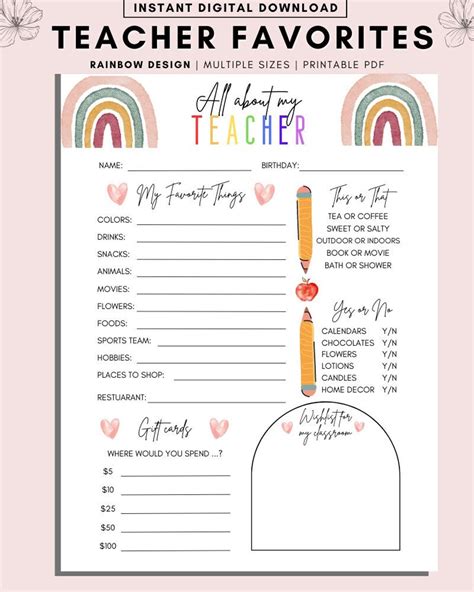 INSTANT DIGITAL DOWNLOAD
TEACHER FAVORITES
RAINBOW DESIGN | MULTIPLE SIZES | PRINTABLE PDF
All about my
TEACHER
NAME: BIRTHDAY:
My Favorite Things
COLORS:
DRINKS:
SNACKS:
ANIMALS:
MOVIES:
FLOWERS:
FOODS:
SPORTS TEAM:
HOBBIES:
PLACES TO SHOP:
RESTUARANT:
This or That
TEA OR COFFEE
SWEET OR SALTY
OUTDOOR OR INDOORS
BOOK OR MOVIE
BATH OR SHOWER
Yes or No
CALENDARS Y/N
CHOCOLATES Y/N
FLOWERS Y/N
LOTIONS Y/N
CANDLES Y/N
HOME DECOR Y/N
Gift cards
WHERE WOULD YOU SPEND ...?
$5
$10
$25
$50
$100
Wishlist for
my classroom